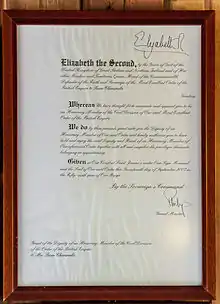 Elizabeth R
Elizabeth the Second, by the Grace of God of the
United Kingdom of Great Britain and Northern Ireland and of Her
Other Realms and Territories Queen, Head of the Commonwealth,
Defender of the Faith and Sovereign of the Most Excellent Order of the
British Empire to
Greeting
Whereas We have thought fit to nominate and appoint you to be
an Honorary Member of the Civil Division of Our said Most Excellent Order
of the British Empire
We do by these presents grant unto you the Dignity of an
Honorary Member of Our said Order and hereby authorise you to have
hold and enjoy the said Dignity and Rank of an Honorary Member of
Our aforesaid Order together with all and singular the privileges thereunto
belonging or appertaining
Given at Our Court at Saint James's under Our Sign Manual
and the Seal of Our said Order this day of September 2007 in
the Fifty-sixth year of Our Reign
By the Sovereign's Command
Grand Master
Grant of the Dignity of an Honorary Member of the Civil Division
of the Order of the British Empire
to